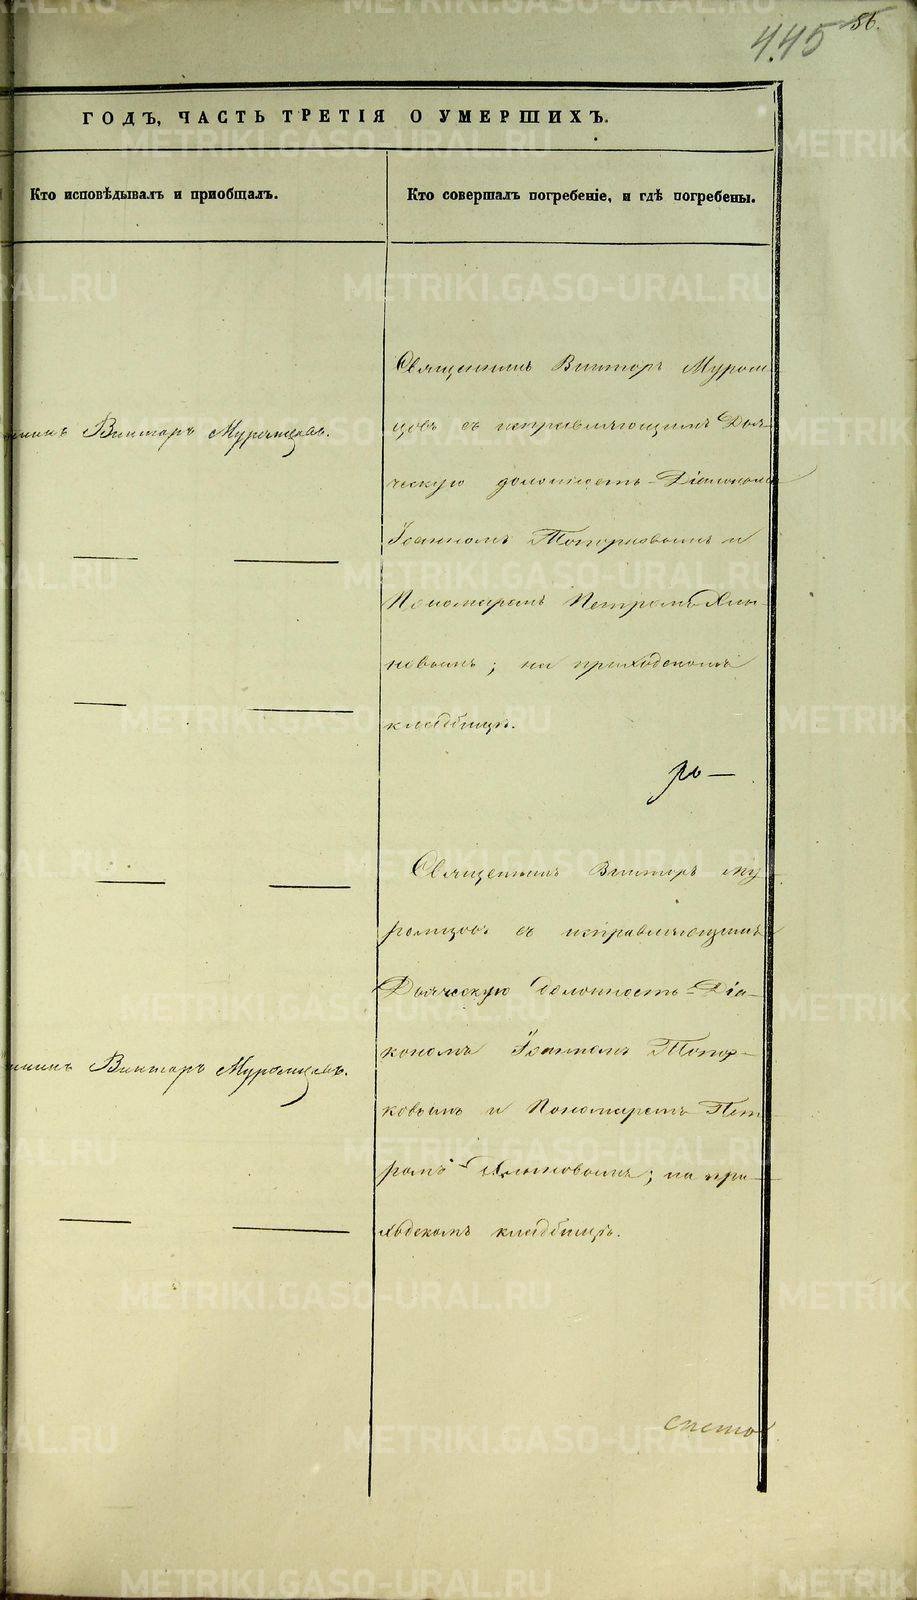 445 86.
ГОДЪ, ЧАСТЬ ТРЕТІЯ О УМЕРШИХЪ.
Кто исповѣдывалъ и пріобщалъ.
Кто совершалъ погребеніе, и гдѣ погребены.
Викторъ Муромцовъ.
Викторъ Муромцовъ.
Священникъ Викторъ Муром
цовъ съ исправляющимъ Дья
ческую должность Діакономъ
Іоанномъ Топорковымъ и
Пономаремъ Петромъ Хлы-
новымъ; на приходскомъ
кладбищѣ.
Священникъ Викторъ Му
ромцовъ съ исправляющимъ
Дьяческую должность Діа-
кономъ Іоанномъ Топор-
ковымъ и Пономаремъ Пет
ромъ Хлыновымъ; на при-
ходскомъ кладбищѣ.
METRIKI.GASO-URAL.RU